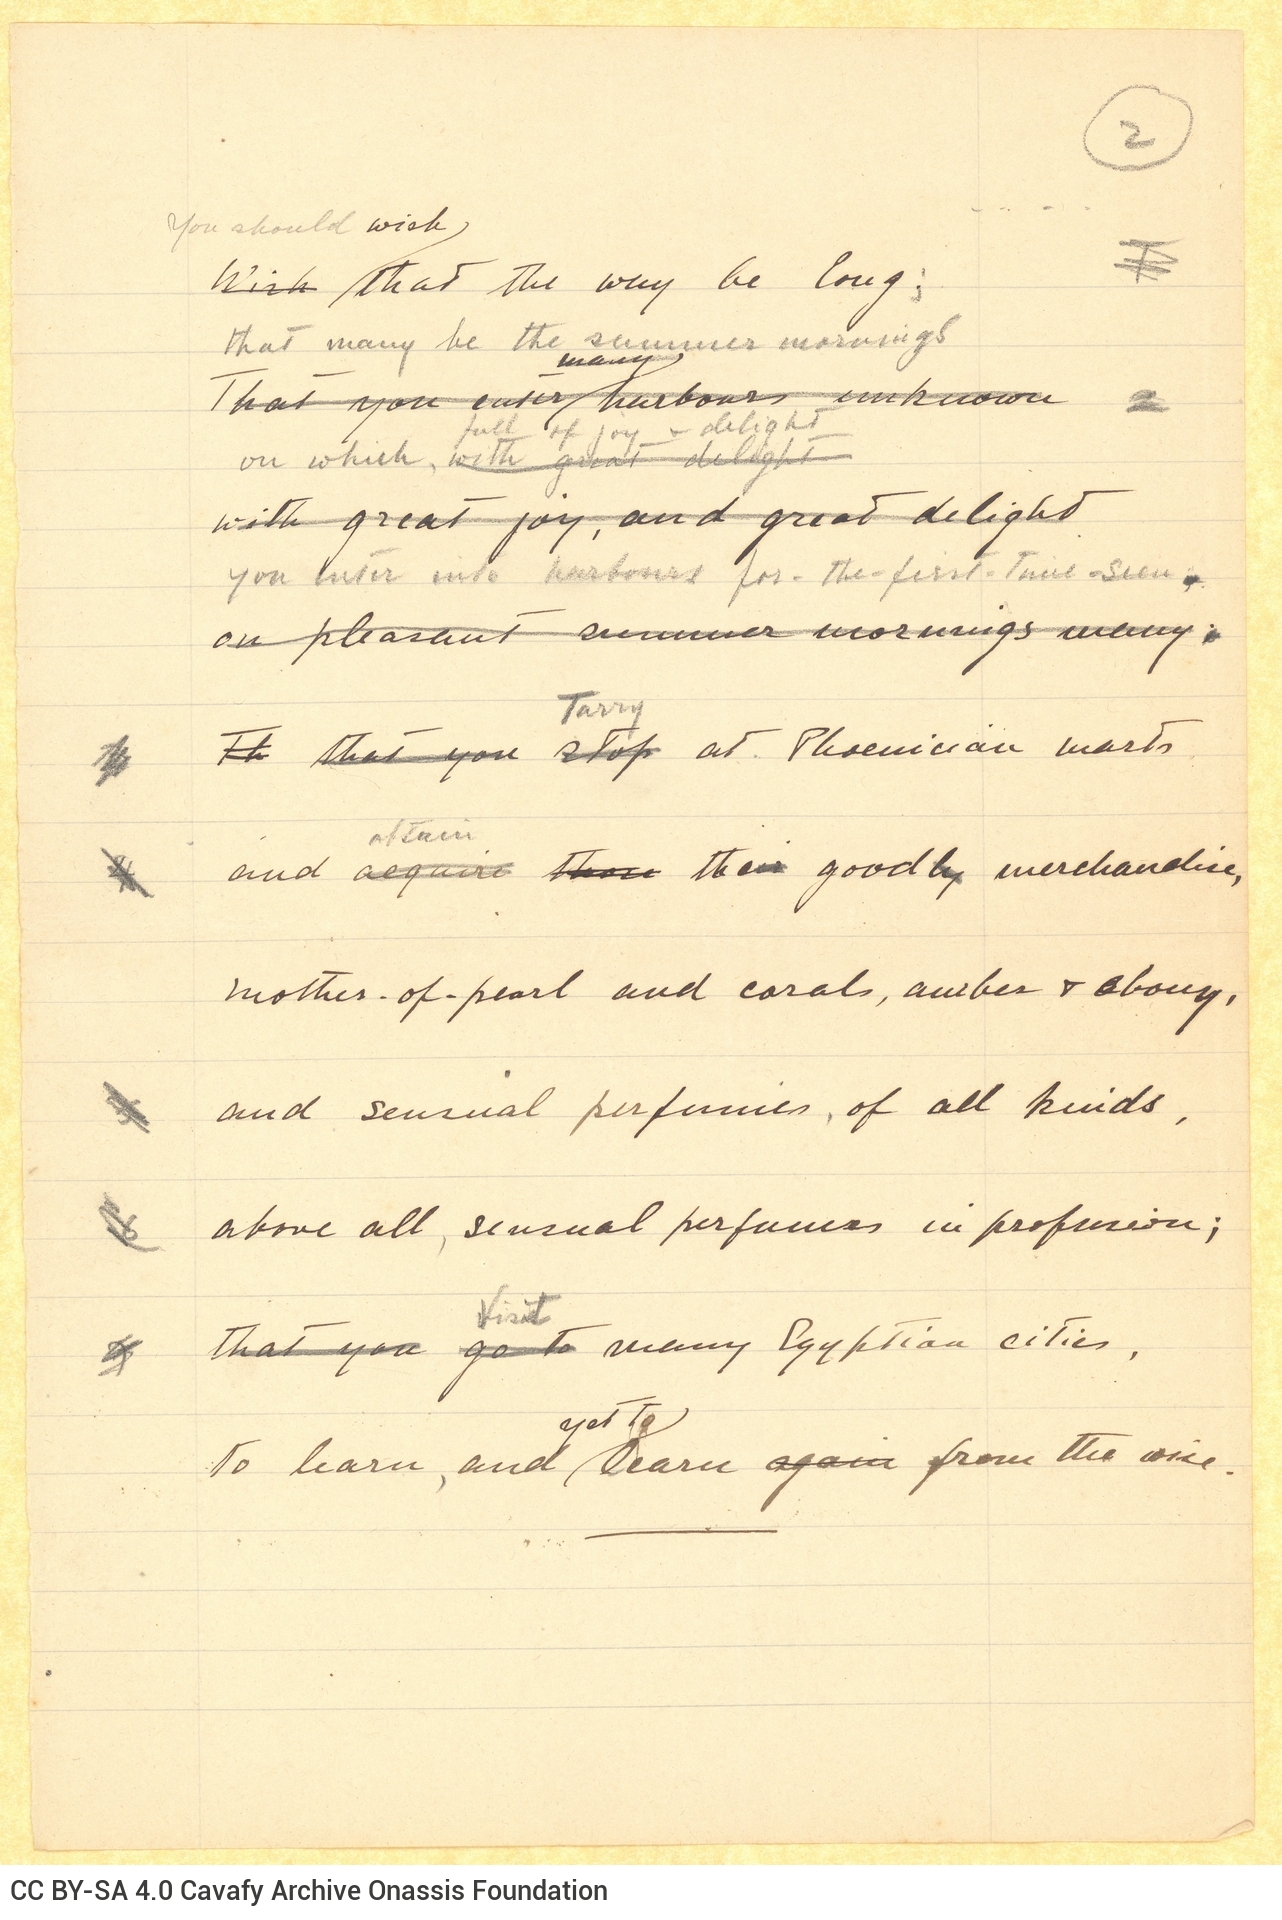 2
You should wish
Wish that the way be long;
that many be the summer mornings
many
That you enter harbours unknown
full of joy & delight
on which, with great delight
with great joy, and great delight
you enter into harbours for-the-first-time-seen;
on pleasant summer mornings many;
Tarry
Th that you stop at Phoenician marts
obtain
and acquire their goodly merchandise,
mother-of-pearl and corals, amber & ebony,
and sensual perfumes, of all kinds,
above all, sensual perfumes in profusion;
Visit
that you go to many Egyptian cities,
yet to
to learn, and learn again from the wise.
CC BY-SA 4.0 Cavafy Archive Onassis Foundation